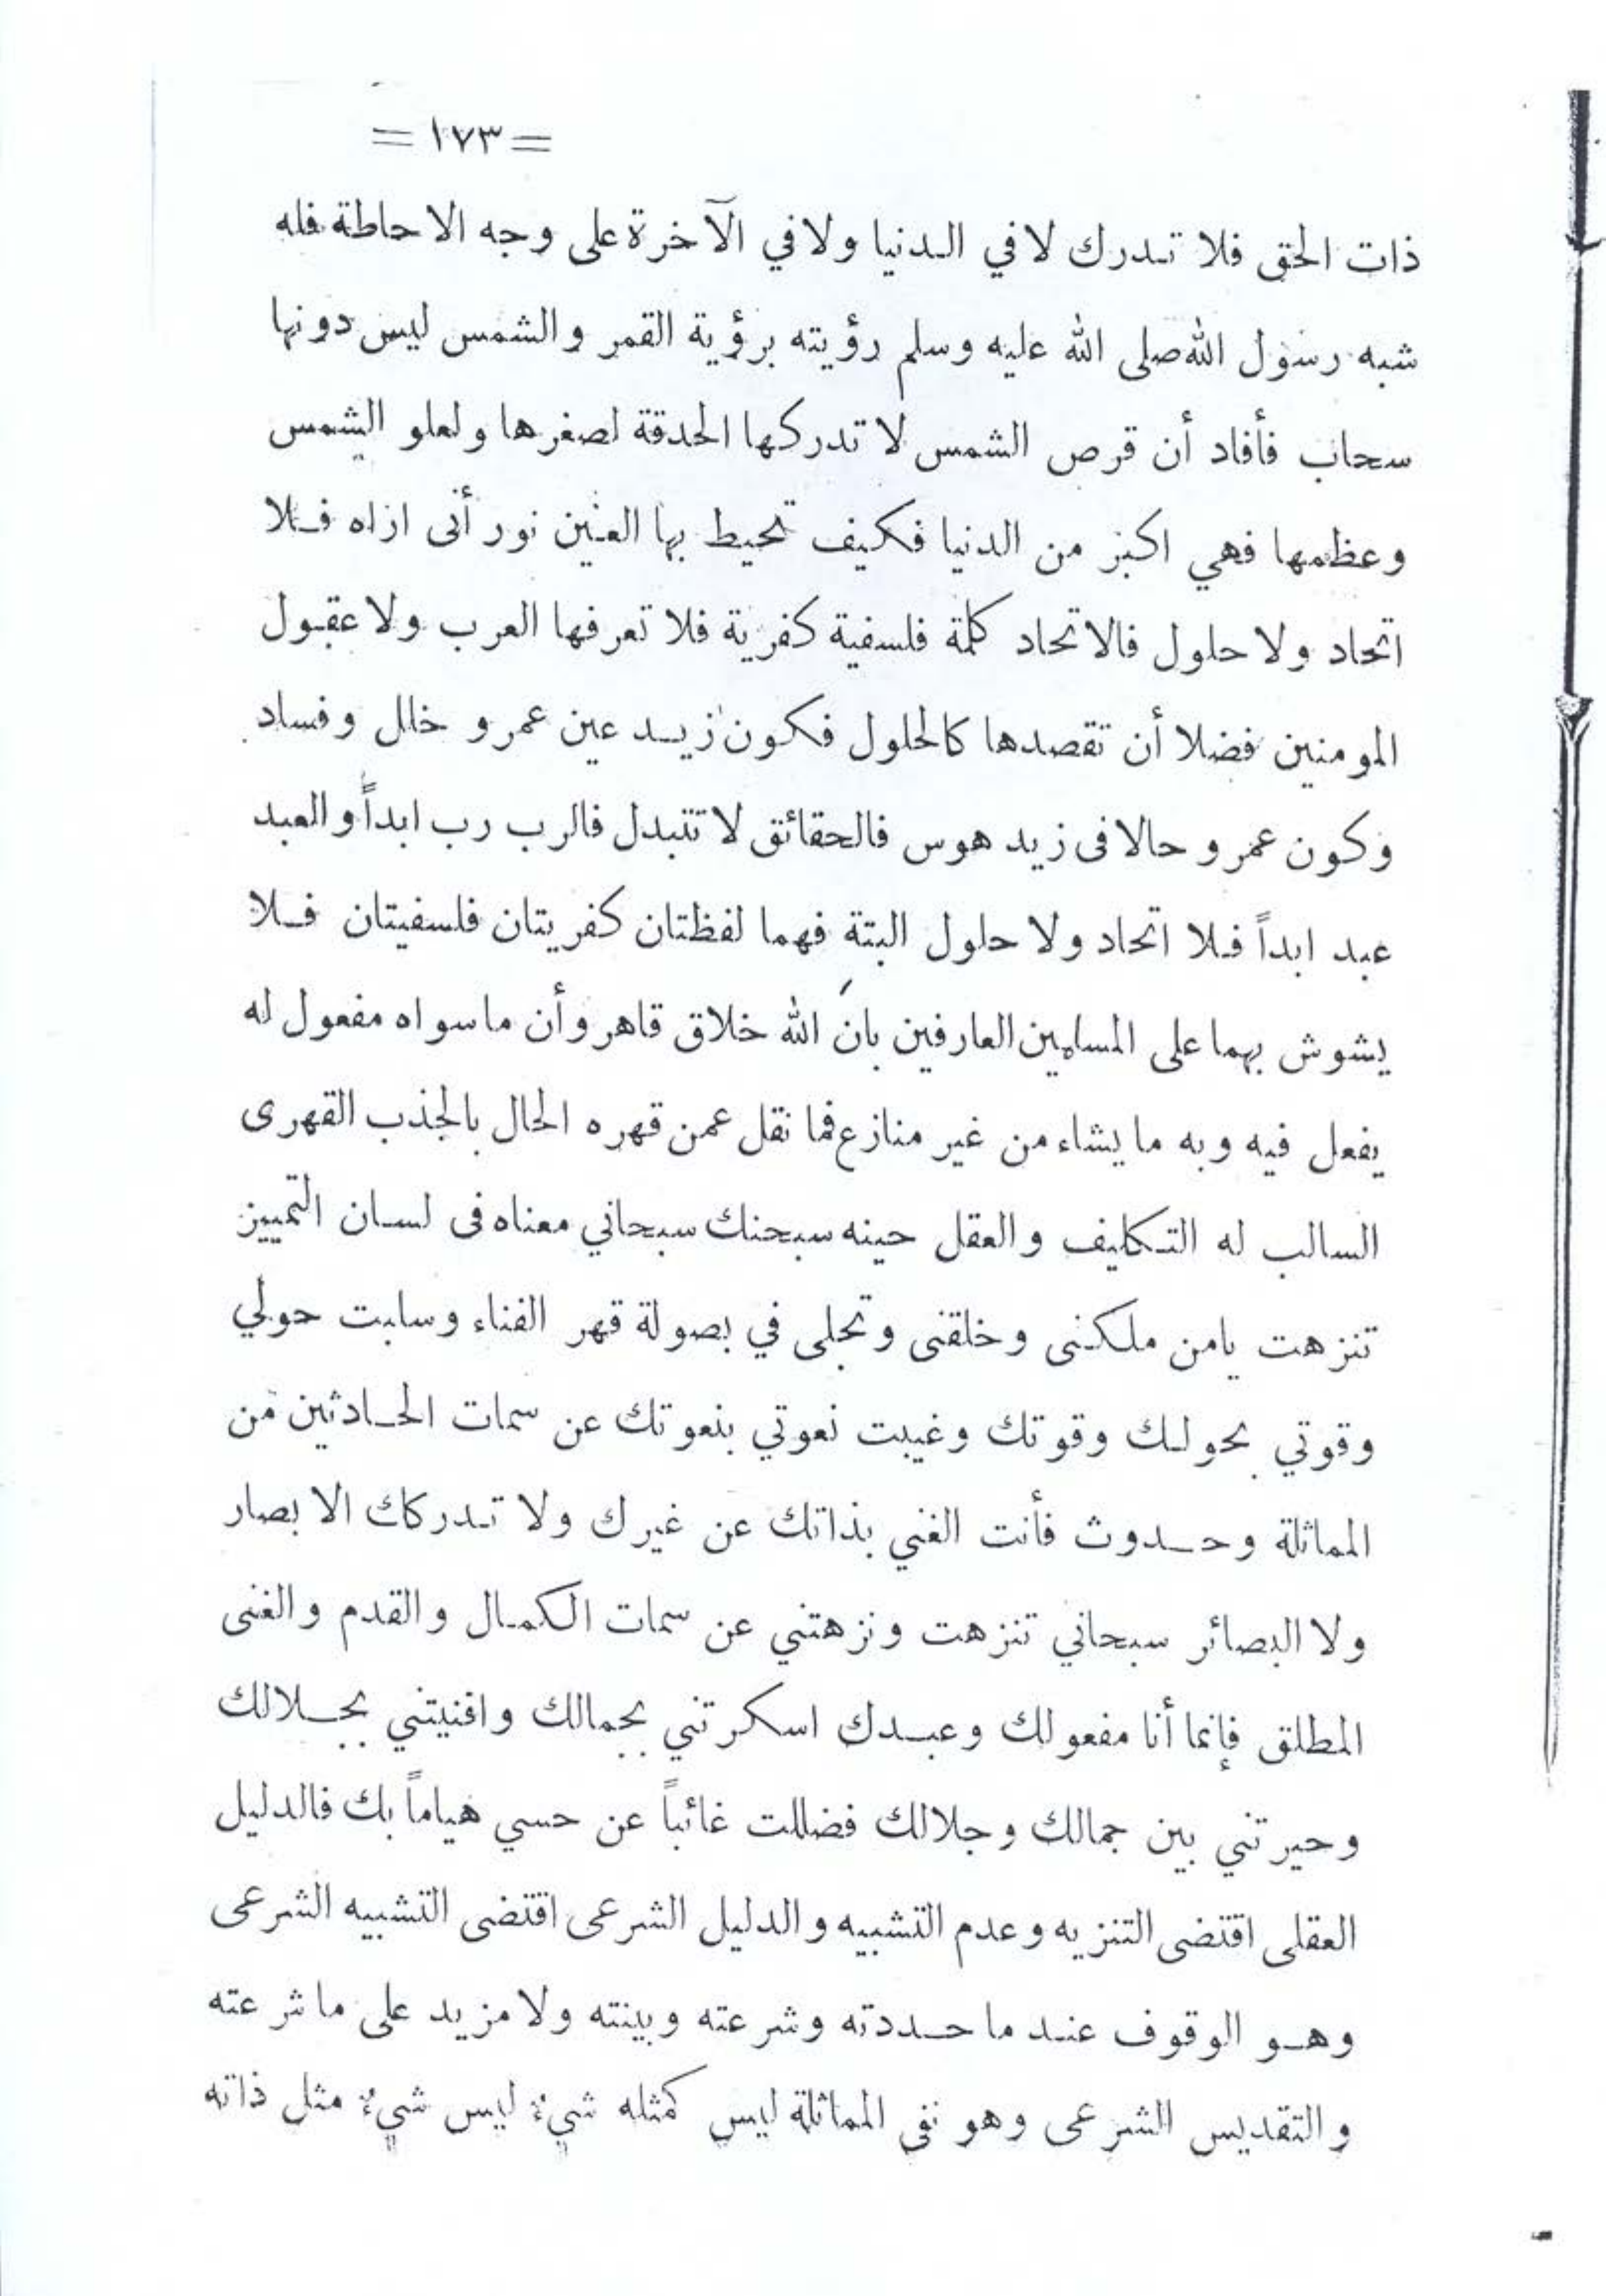 = ١٧٣ =
ذات الحق فلا تدرك لا في الدنيا ولا في الآخرة على وجه الاحاطة فله
شبه رسول الله صلى الله عليه وسلم رؤيته برؤية القمر والشمس ليس دونها
سحاب فأفاد أن قرص الشمس لا تدركها الحدقة لصغرها ولعلو الشمس
وعظمها فهي اكبر من الدنيا فكيف تحيط بها العين نور أنى اراه فلا
اتحاد ولا حلول فالاتحاد كلمة فلسفية كفرية فلا تعرفها العرب ولا عقول
المومنين فضلا أن تقصدها كالحلول فكون زيد عين عمرو خلل وفساد
وكون عمرو حالا فى زيد هوس فالحقائق لا تتبدل فالرب رب ابداً والعبد
عبد ابداً فلا اتحاد ولا حلول البتة فهما لفظتان كفريتان فلسفيتان فلا
يشوش بهما على المسلمين العارفين بانَ الله خلاق قاهر وأن ما سواه مفعول له
يفعل فيه وبه ما يشاء من غير منازع فما نقل عمن قهره الحال بالجذب القهرى
السالب له التكليف والعقل حينه سبحنك سبحاني معناه فى لسان التمييز
تنزهت يامن ملكنى وخلقنى وتجلى في بصولة قهر الفناء وسلبت حولي
وقوتي بحولك وقوتك وغيبت نعوتي بنعوتك عن سمات الحادثين من
المماثلة وحدوث فأنت الغني بذاتك عن غيرك ولا تدركك الابصار
ولا البصائر سبحاني تنزهت ونزهتني عن سمات الكمال والقدم والغنى
المطلق فإنما أنا مفعولك وعبدك اسكرتني بجمالك وافنيتني بجلالك
وحيرتني بين جمالك وجلالك فضللت غائباً عن حسي هياماً بك فالدليل
العقلى اقتضى التنزيه وعدم التشبيه والدليل الشرعى اقتضى التشبيه الشرعى
وهو الوقوف عند ما حددته وشرعته وبينته ولا مزيد على ما شرعته
والتقديس الشرعى وهو نفى المماثلة ليس كمثله شيءٌ ليس شيءٌ مثل ذاته